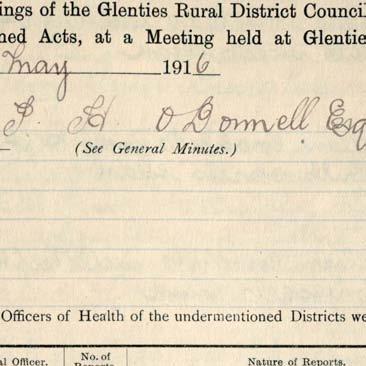 ings of the Glenties Rural District Council
ned Acts, at a Meeting held at Glentie
May 1916
P. H. O'Donnell Esq
(See General Minutes.)
Officers of Health of the undermentioned Districts we
al Officer. No. of Reports. Nature of Reports.